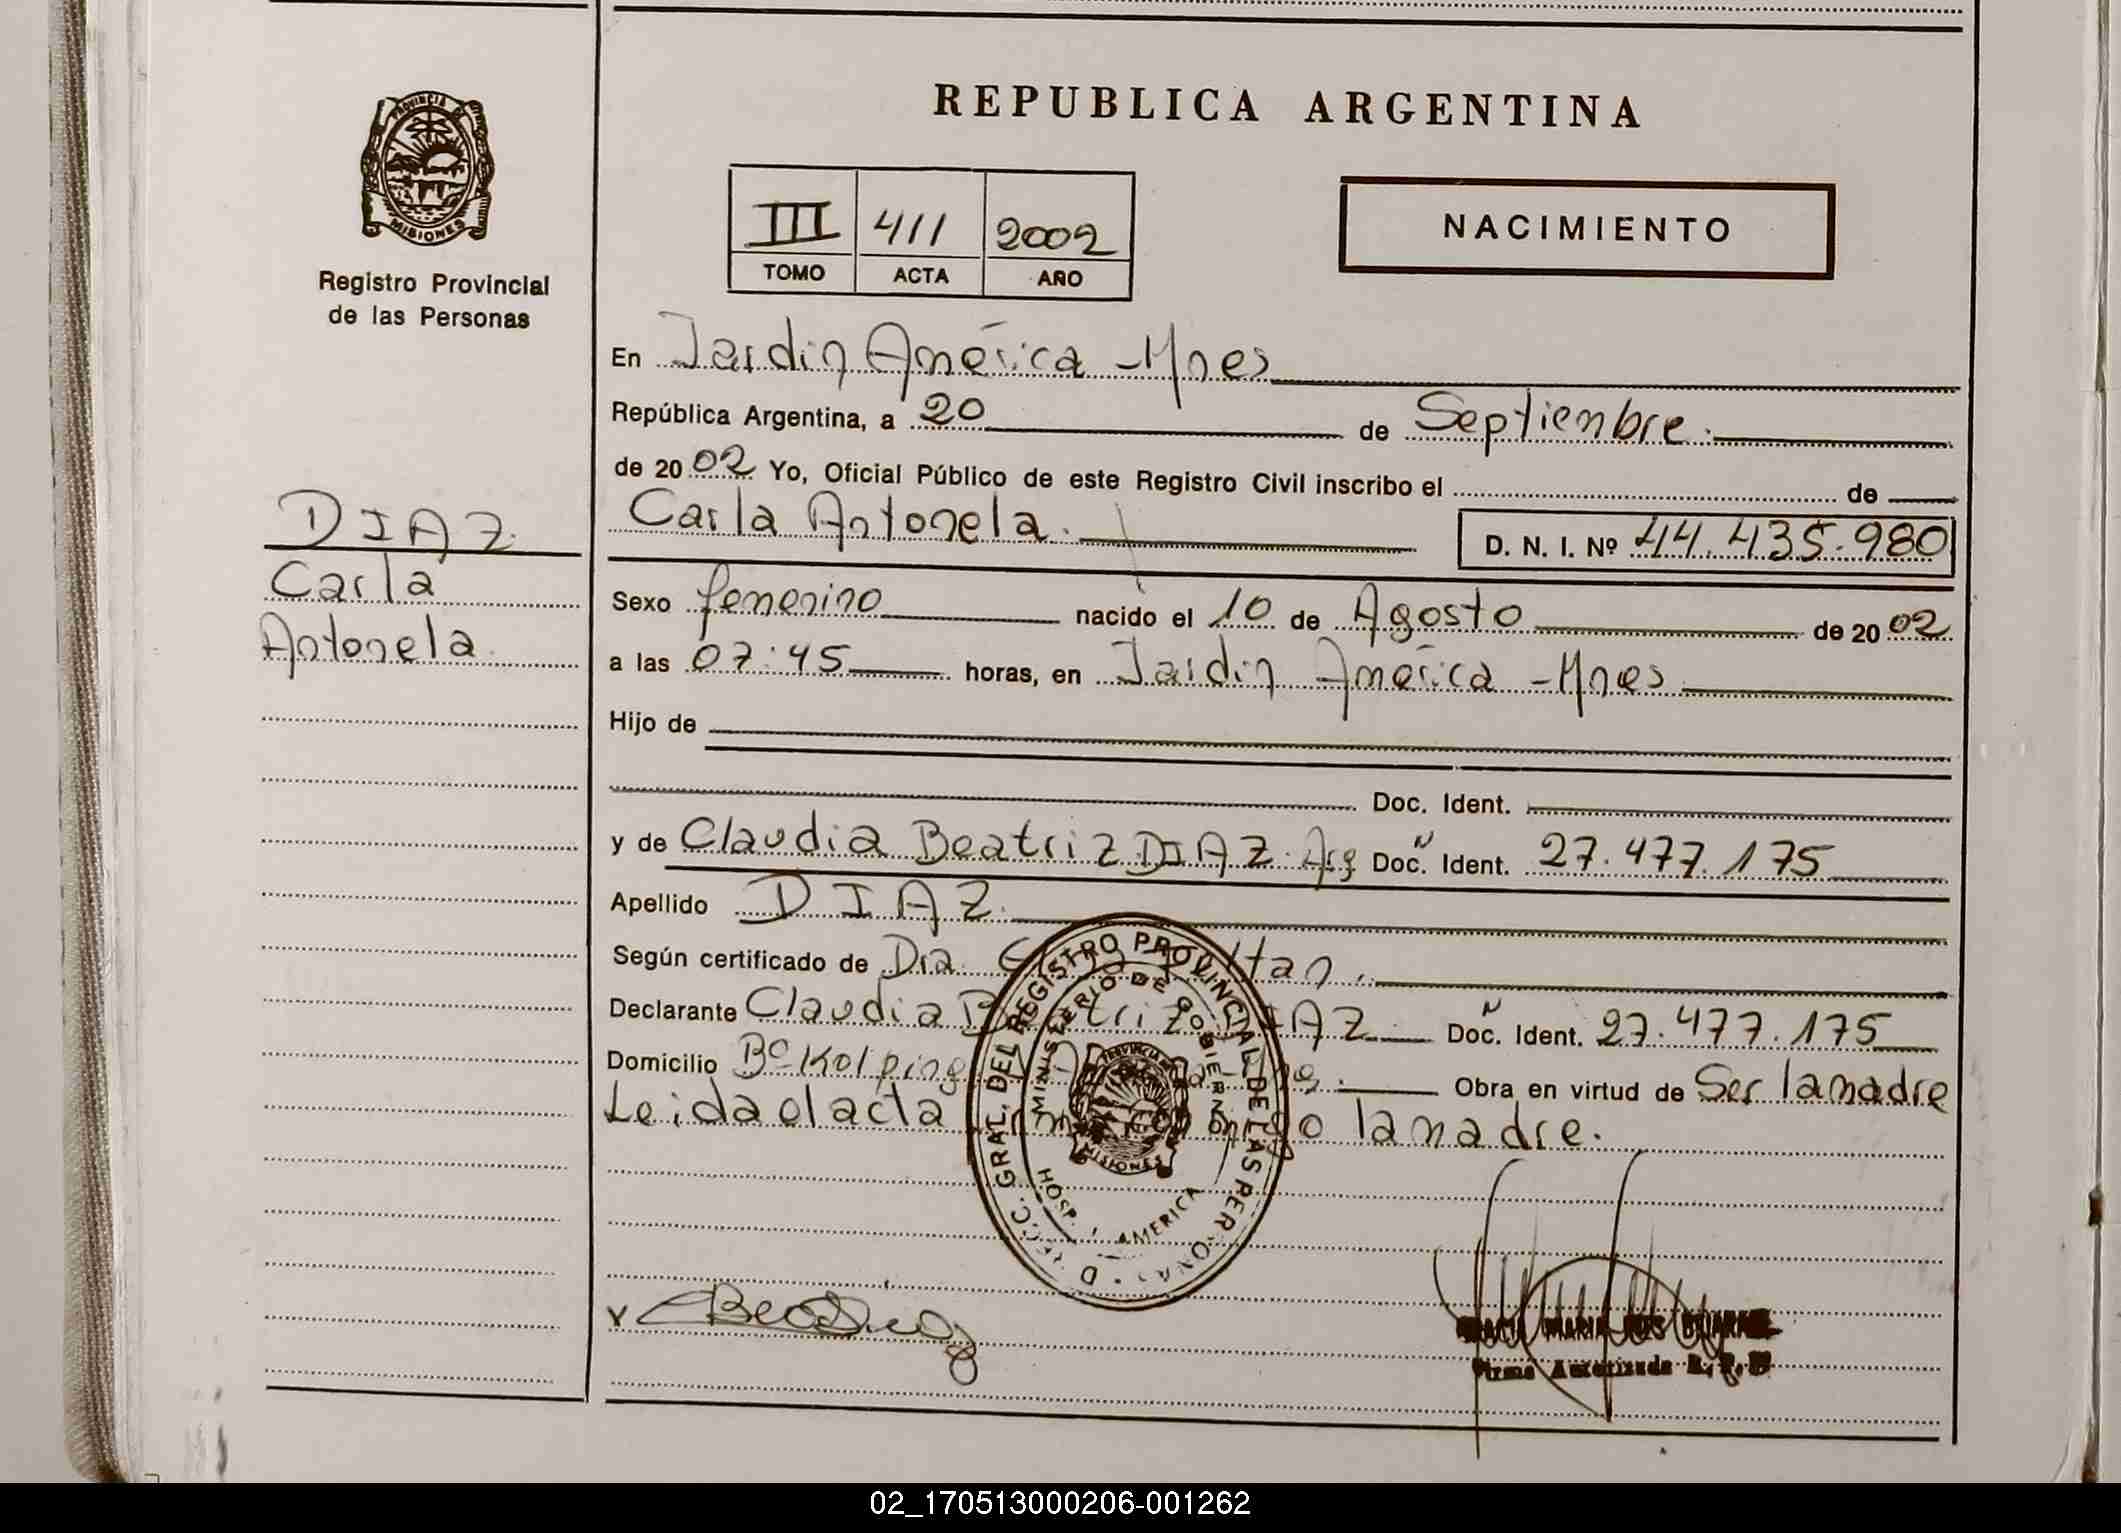 REPUBLICA ARGENTINA
PROVINCIA
MISIONES
Registro Provincial
de las Personas
III 411 2002
TOMO ACTA AÑO
NACIMIENTO
DIAZ
Carla
Antonela
En Jardin América - Mnes
República Argentina, a 20 de Septiembre.
de 2002 Yo, Oficial Público de este Registro Civil inscribo el de
Carla Antonela. D. N. I. Nº 44.435.980
Sexo femenino nacido el 10 de Agosto de 2002
a las 07:45 horas, en Jardin América - Mnes
Hijo de
Doc. Ident.
y de Claudia Beatriz DIAZ. Arg Doc. Ident. 27.477.175
Apellido DIAZ.
Según certificado de Dra.
Declarante Claudia Beatriz DIAZ Doc. Ident. 27.477.175
Domicilio Bº Kolping Obra en virtud de Ser la madre
Leida el acta conmigo la madre.
GRAL. DEL REGISTRO PROVINCIAL DE LAS PERSONAS
MINISTERIO DE GOBIERNO
PROVINCIA
MISIONES
HOSP. AMERICA
MARIA
Firma Autorizada R. P. P.
02_170513000206-001262